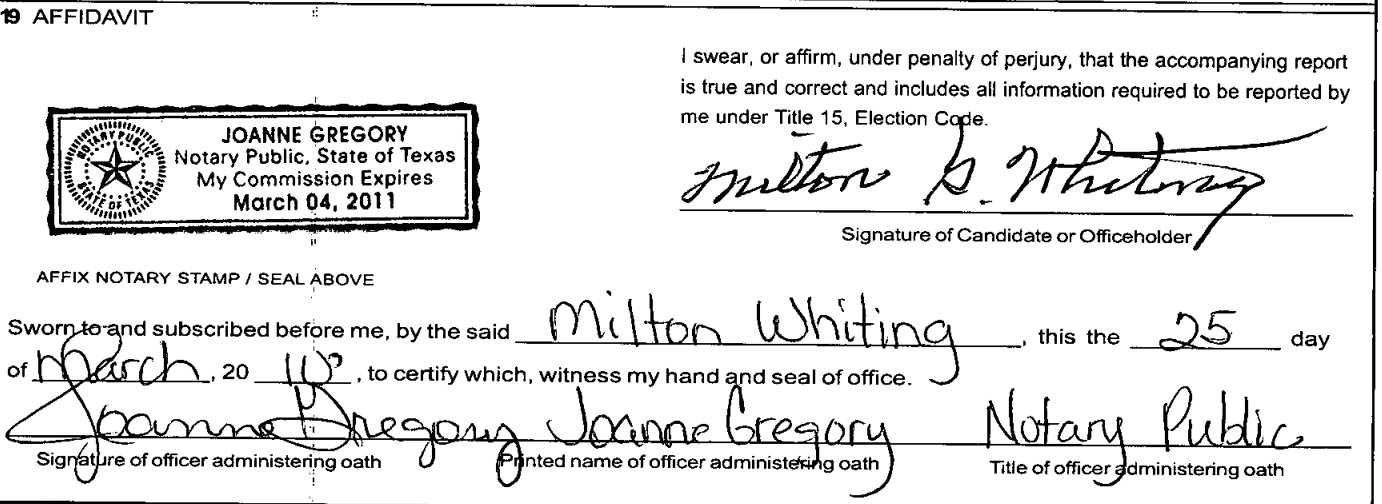 19 AFFIDAVIT
I swear, or affirm, under penalty of perjury, that the accompanying report
is true and correct and includes all information required to be reported by
me under Title 15, Election Code.
NOTARY PUBLIC
STATE OF TEXAS
JOANNE GREGORY
Notary Public, State of Texas
My Commission Expires
March 04, 2011
Milton G. Whiting
Signature of Candidate or Officeholder
AFFIX NOTARY STAMP / SEAL ABOVE
Sworn to and subscribed before me, by the said Milton Whiting, this the 25 day
of March, 20 10, to certify which, witness my hand and seal of office.
Joanne Gregory Joanne Gregory Notary Public
Signature of officer administering oath Printed name of officer administering oath Title of officer administering oath